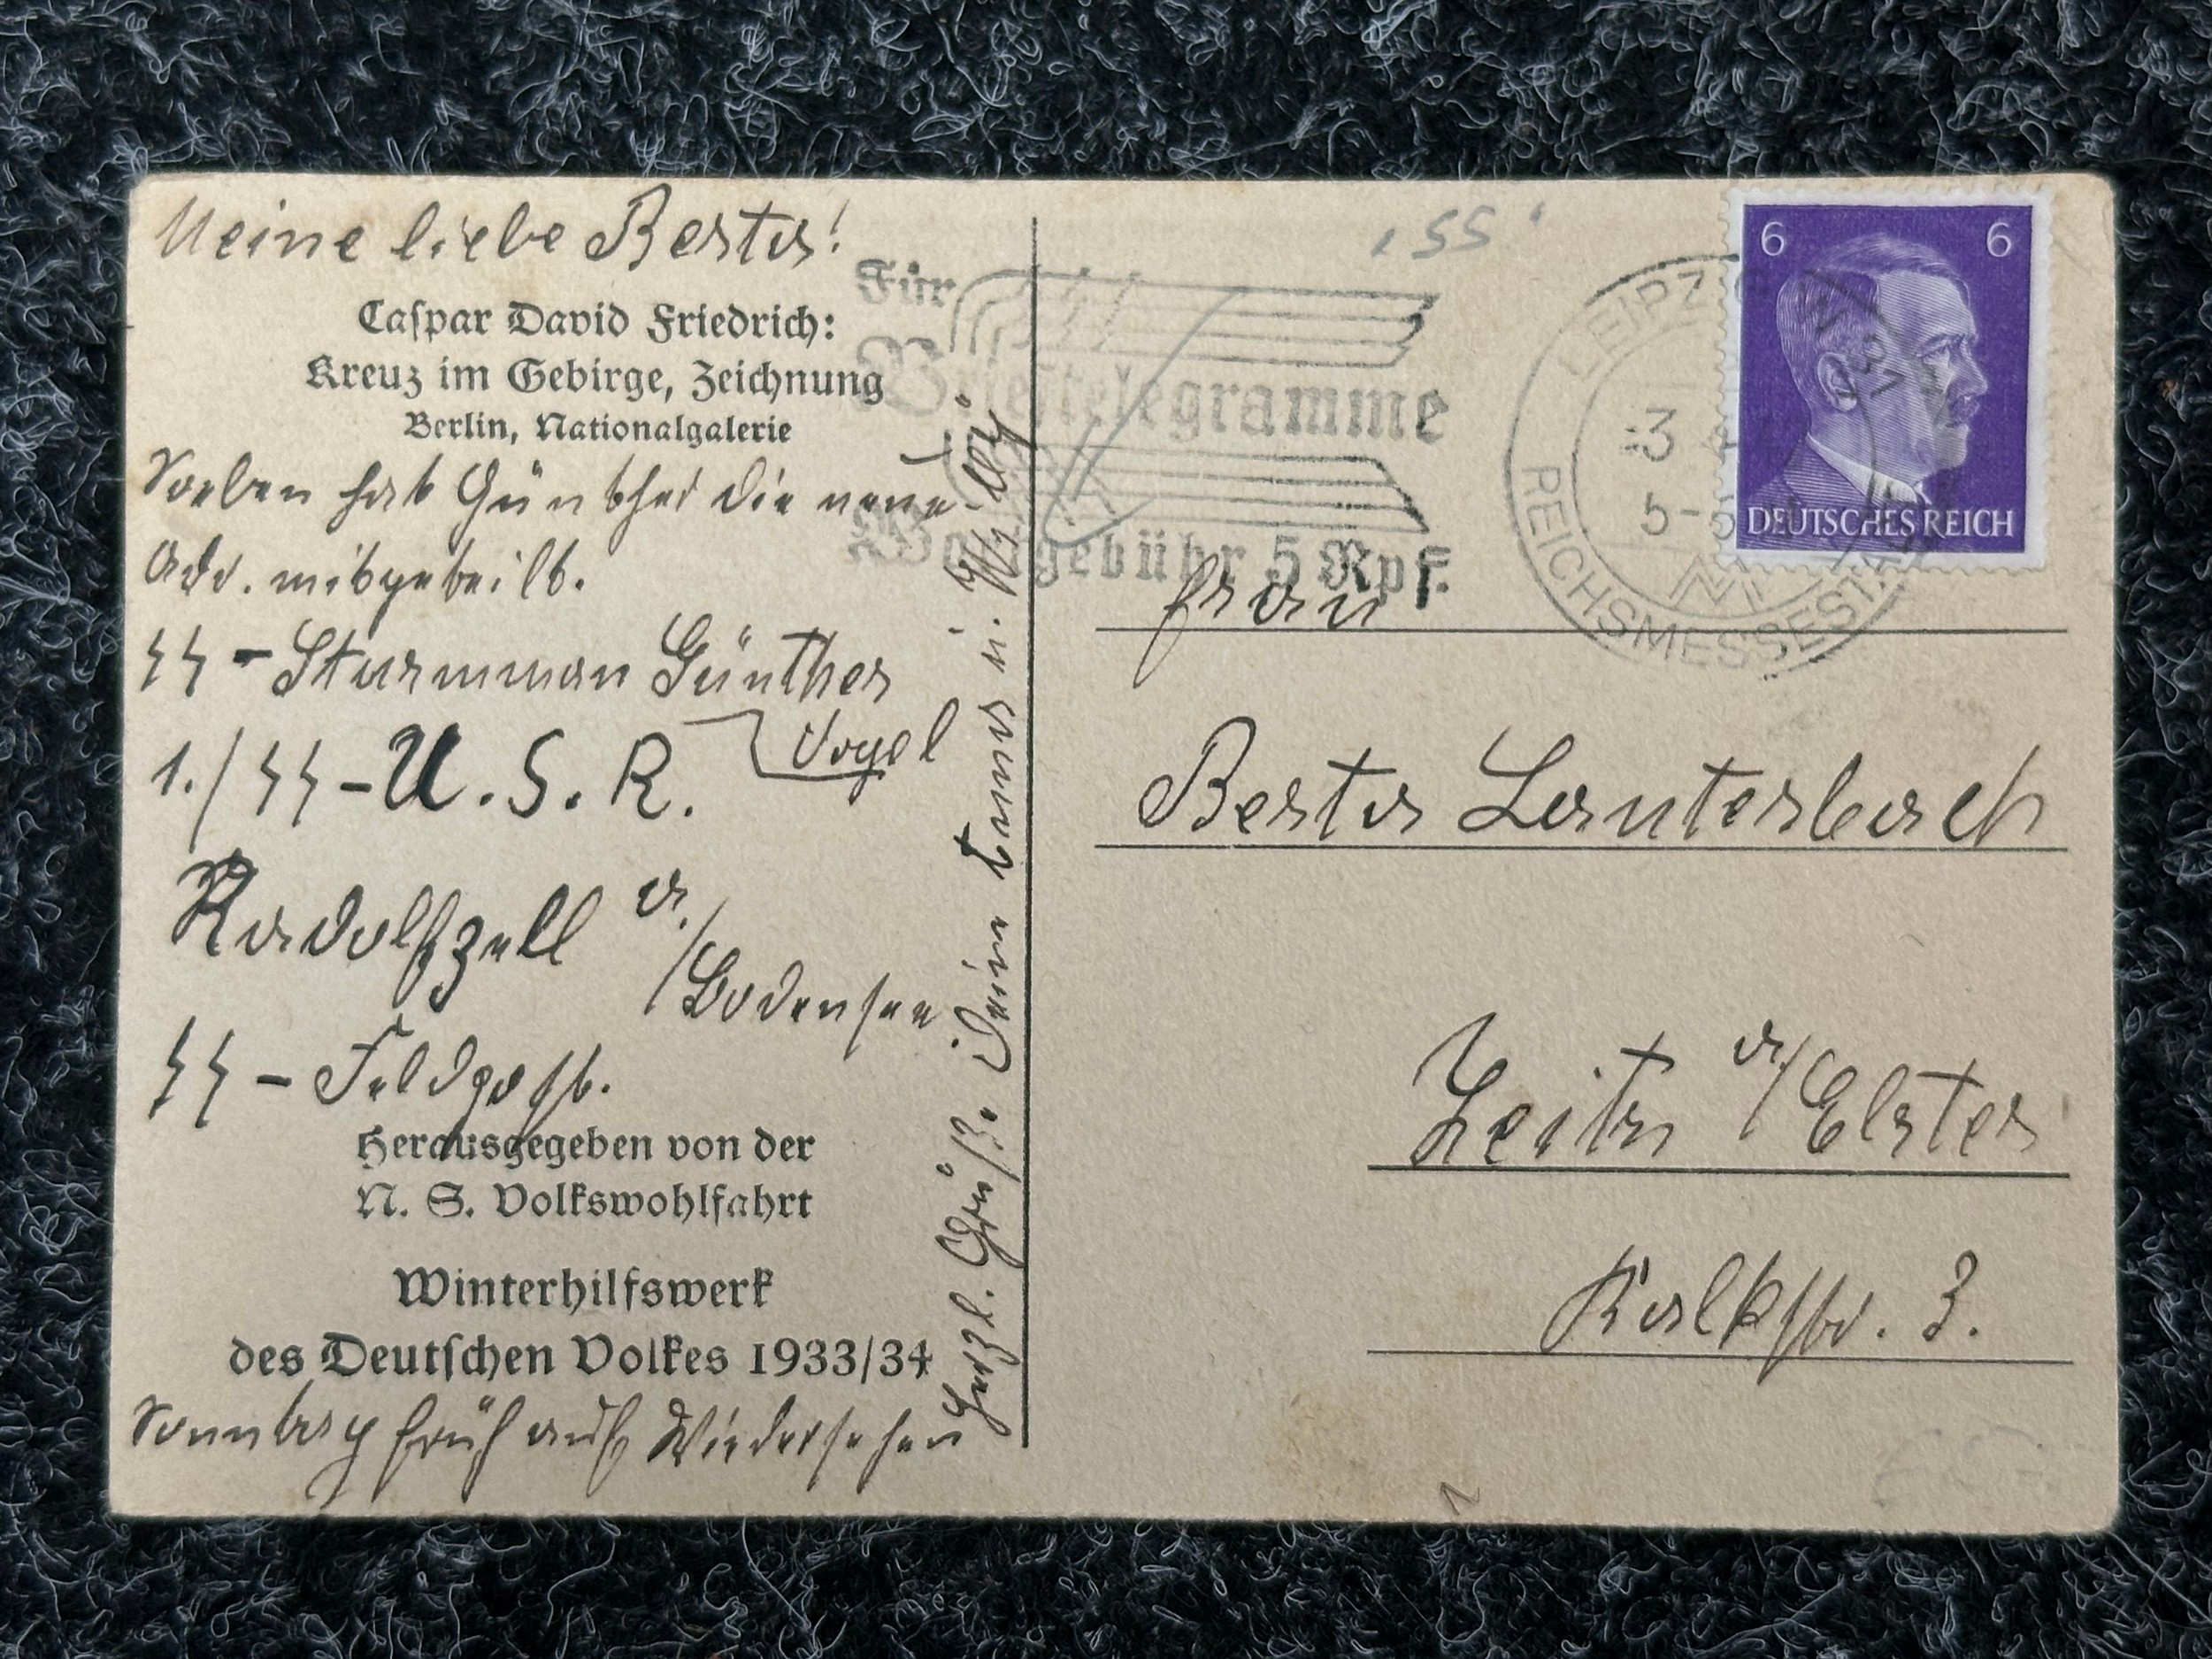 Meine liebe Berta!
Caspar David Friedrich:
Kreuz im Gebirge, Zeichnung
Berlin, Nationalgalerie
Soeben hat Günther die neue
Adr. mitgeteilt.
SS-Sturmman Günther
Vogel
1./SS-U.S.R.
Radolfzell a.
/Bodensee
SS-Feldpost.
Herausgegeben von der
N. S. Volkswohlfahrt
Winterhilfswerk
des Deutschen Volkes 1933/34
Sonntag früh auf Wiedersehen
Herzl. Grüße Deine Erna u.
Für
Brieftelegramme
Wortgebühr 5 Rpf.
LEIPZIG W 31
-3 4
5-
REICHSMESSESTADT
6 6
DEUTSCHES REICH
Frau
Berta Lauterbach
Zeitz a/Elster
Kalkstr. 3.